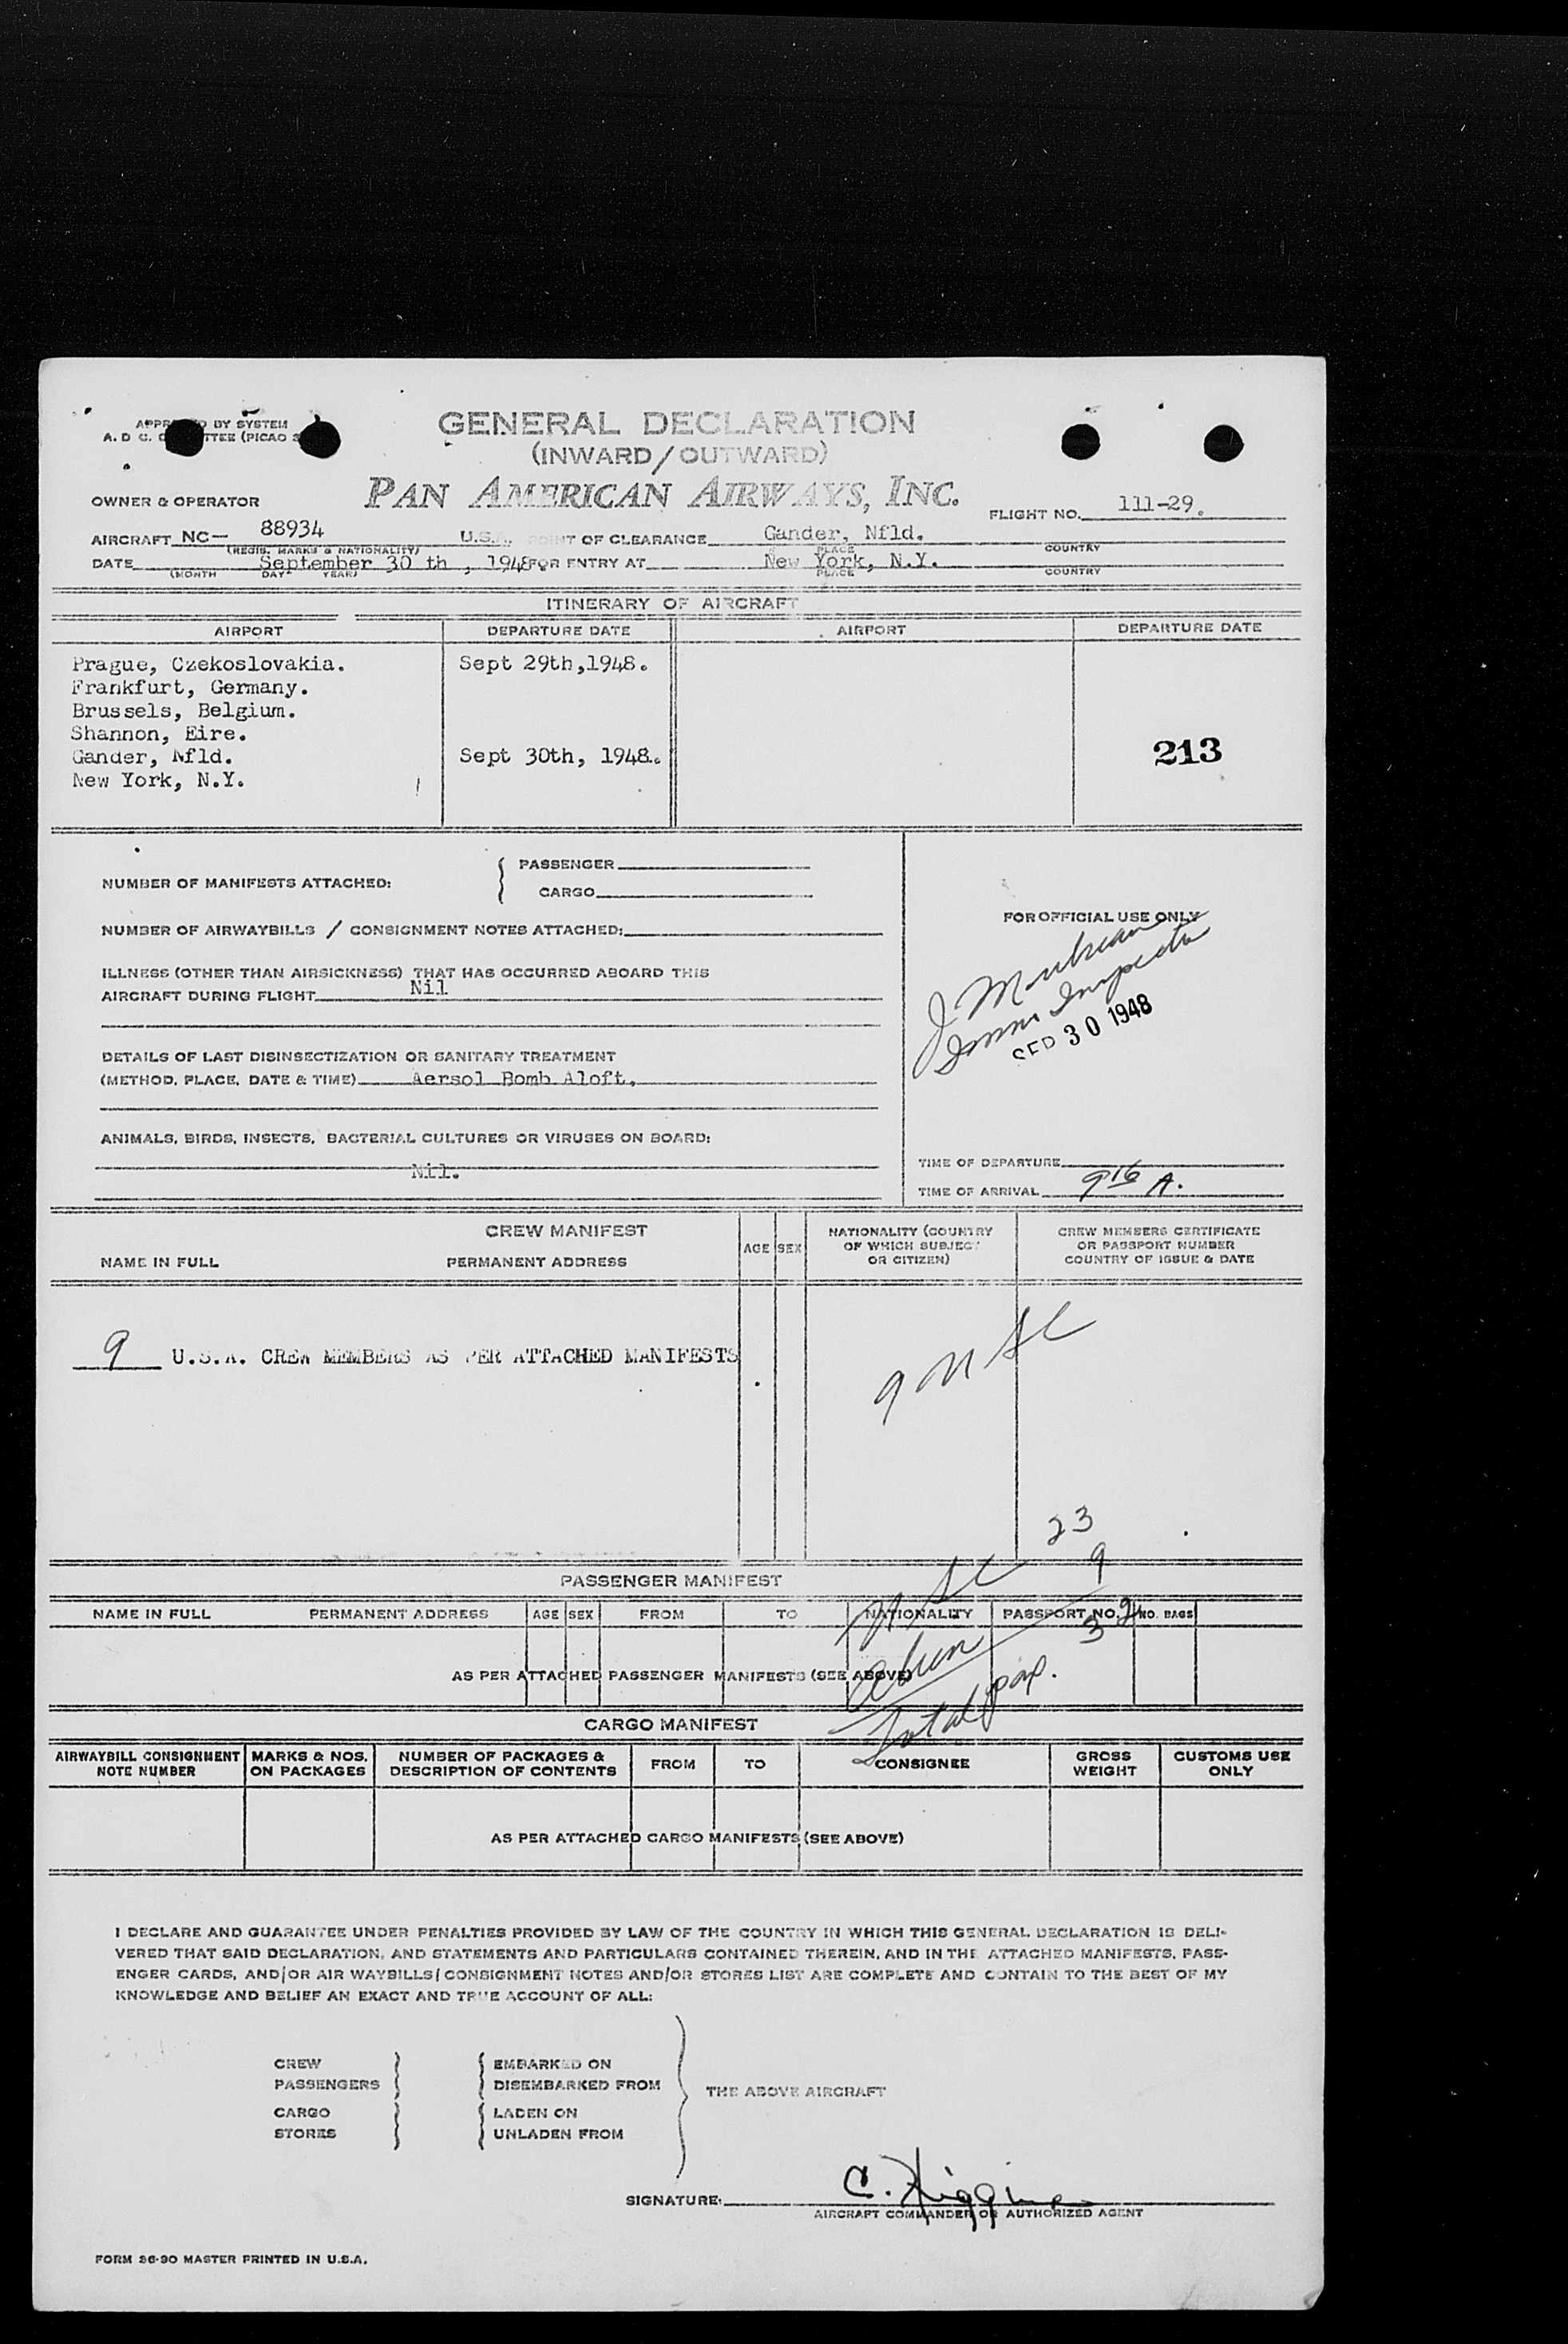 GENERAL DECLARATION
(INWARD/OUTWARD)
BY SYSTEM
A. D C. (PICAO
PAN AMERICAN AIRWAYS, INC.
OWNER & OPERATOR
FLIGHT NO. 111-29.
AIRCRAFT NC- 88934 U.S.A. POINT OF CLEARANCE Gander, Nfld.
(REGIS. MARKS & NATIONALITY) PLACE COUNTRY
DATE September 30 th , 1948 FOR ENTRY AT New York, N.Y.
(MONTH DAY YEAR) PLACE COUNTRY
ITINERARY OF AIRCRAFT
AIRPORT DEPARTURE DATE AIRPORT DEPARTURE DATE
Prague, Czekoslovakia. Sept 29th,1948.
Frankfurt, Germany.
Brussels, Belgium.
Shannon, Eire.
Gander, Nfld. Sept 30th, 1948.
213
New York, N.Y.
NUMBER OF MANIFESTS ATTACHED: PASSENGER
CARGO
NUMBER OF AIRWAYBILLS / CONSIGNMENT NOTES ATTACHED:
ILLNESS (OTHER THAN AIRSICKNESS) THAT HAS OCCURRED ABOARD THIS
AIRCRAFT DURING FLIGHT Nil
DETAILS OF LAST DISINSECTIZATION OR SANITARY TREATMENT
(METHOD, PLACE, DATE & TIME) Aersol Bomb Aloft.
ANIMALS, BIRDS, INSECTS, BACTERIAL CULTURES OR VIRUSES ON BOARD:
Nil.
FOR OFFICIAL USE ONLY
SEP 30 1948
TIME OF DEPARTURE
TIME OF ARRIVAL 9 16 A.
CREW MANIFEST
NAME IN FULL PERMANENT ADDRESS AGE SEX
NATIONALITY (COUNTRY
OF WHICH SUBJECT
OR CITIZEN)
CREW MEMBERS CERTIFICATE
OR PASSPORT NUMBER
COUNTRY OF ISSUE & DATE
9 U.S.A. CREW MEMBERS AS PER ATTACHED MANIFESTS
9
23
9
32
PASSENGER MANIFEST
NAME IN FULL PERMANENT ADDRESS AGE SEX FROM TO NATIONALITY PASSPORT NO. NO. BAGS
AS PER ATTACHED PASSENGER MANIFESTS (SEE ABOVE)
Total pax.
CARGO MANIFEST
AIRWAYBILL CONSIGNMENT NOTE NUMBER MARKS & NOS. ON PACKAGES NUMBER OF PACKAGES & DESCRIPTION OF CONTENTS FROM TO CONSIGNEE GROSS WEIGHT CUSTOMS USE ONLY
AS PER ATTACHED CARGO MANIFESTS (SEE ABOVE)
I DECLARE AND GUARANTEE UNDER PENALTIES PROVIDED BY LAW OF THE COUNTRY IN WHICH THIS GENERAL DECLARATION IS DELI-
VERED THAT SAID DECLARATION, AND STATEMENTS AND PARTICULARS CONTAINED THEREIN, AND IN THE ATTACHED MANIFESTS, PASS-
ENGER CARDS, AND/OR AIR WAYBILLS/CONSIGNMENT NOTES AND/OR STORES LIST ARE COMPLETE AND CONTAIN TO THE BEST OF MY
KNOWLEDGE AND BELIEF AN EXACT AND TRUE ACCOUNT OF ALL:
CREW EMBARKED ON
PASSENGERS DISEMBARKED FROM
THE ABOVE AIRCRAFT
CARGO LADEN ON
STORES UNLADEN FROM
SIGNATURE: C. Higgins
AIRCRAFT COMMANDER OR AUTHORIZED AGENT
FORM 36-90 MASTER PRINTED IN U.S.A.